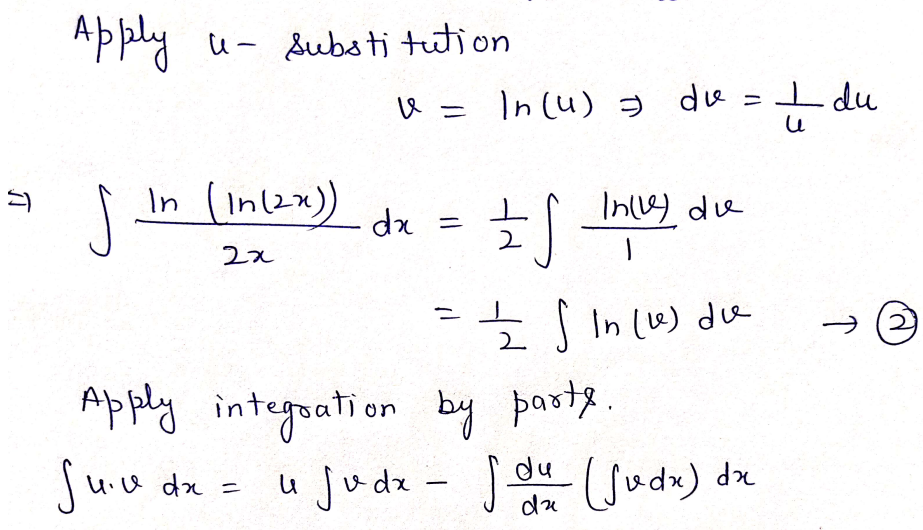 Apply u- substitution
v = ln(u) ⇒ dv = 1/u du
⇒ ∫ ln (ln(2x))/2x dx = 1/2 ∫ ln(v)/1 dv
= 1/2 ∫ ln(v) dv → ②
Apply integration by parts.
∫ u.v dx = u ∫ v dx - ∫ du/dx (∫ v dx) dx